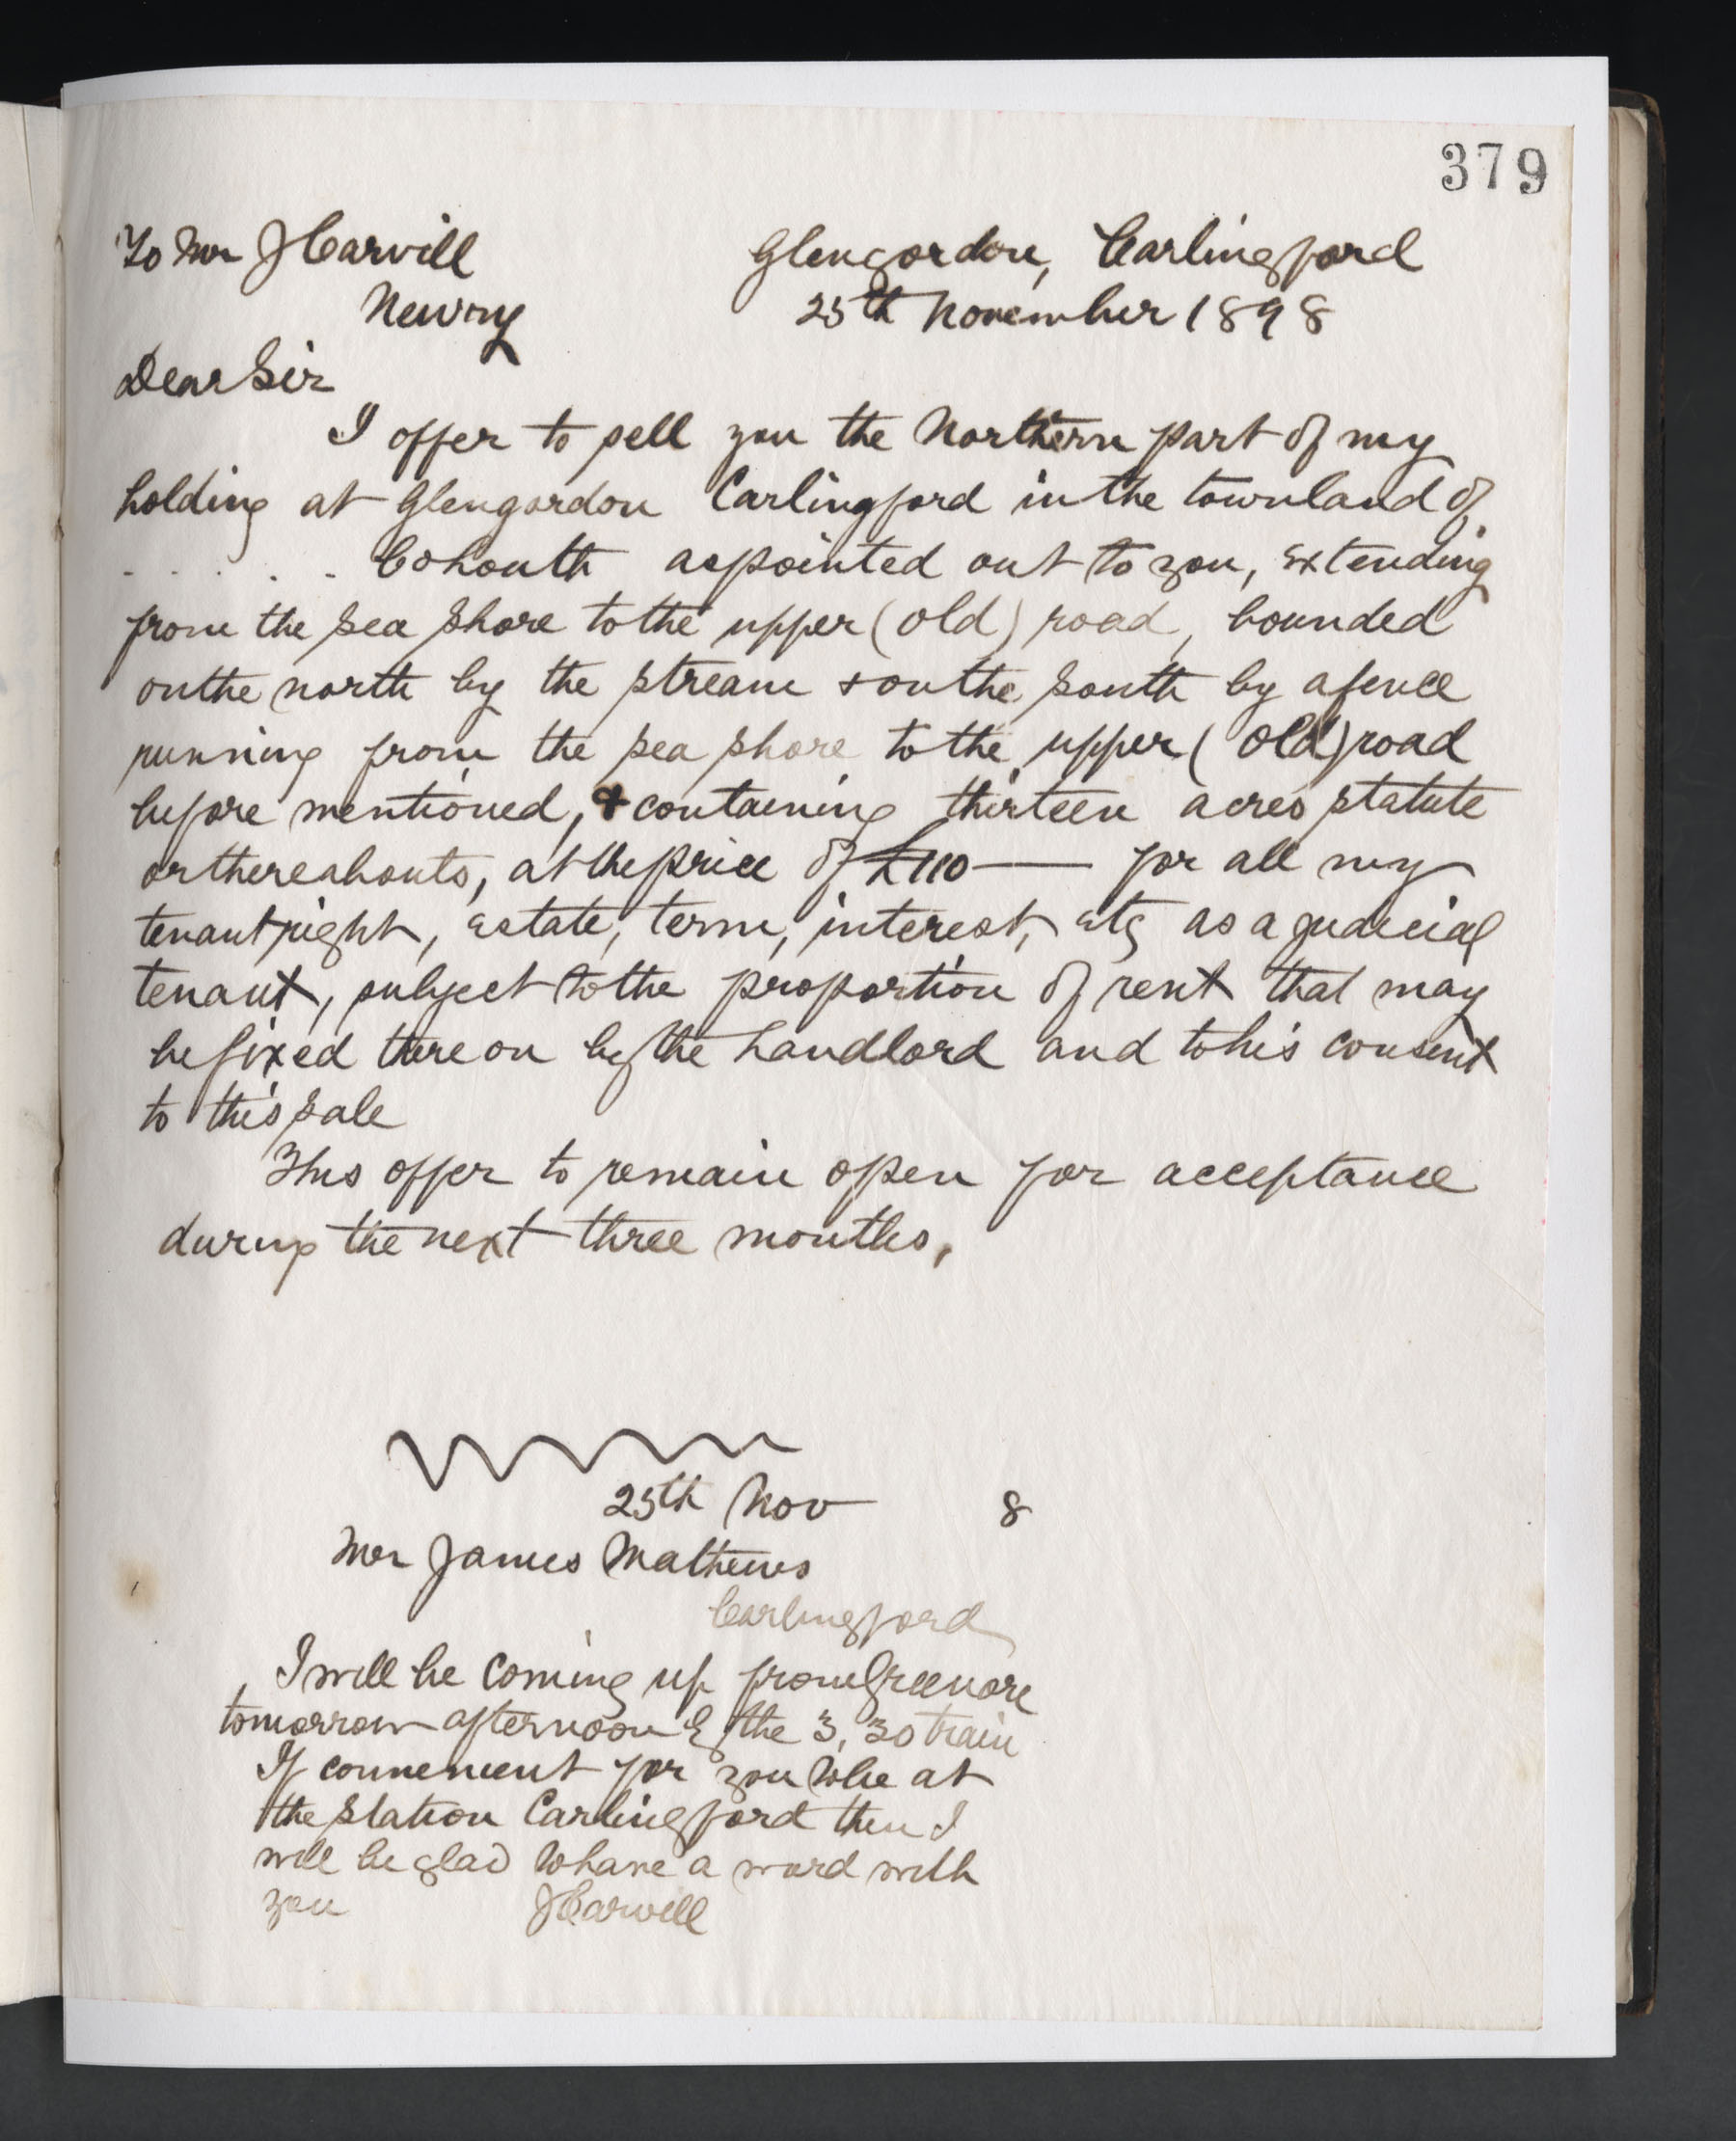 379
To Mr J Carvill
Glengordon, Carlingford
Newry
25th November 1898
Dear Sir
I offer to sell you the Northern part of my
holding at Glengordon Carlingford in the townland of
. . . . . as pointed out to you, extending
from the sea shore to the upper (old) road, bounded
on the north by the stream + on the south by a fence
running from the sea shore to the upper (old) road
before mentioned, & containing thirteen acres statute
or thereabouts, at the price of £110 — for all my
tenantright, estate, term, interest, etc as a judicial
tenant, subject to the proportion of rent that may
be fixed thereon by the Landlord and to his consent
to this sale
This offer to remain open for acceptance
during the next three months.
25th Nov 8
Mr James Mathews
Carlingford
I will be coming up from Greenore
tomorrow afternoon by the 3.30 train
If convenient for you to be at
the station Carlingford then I
will be glad to have a word with
you JCarvill